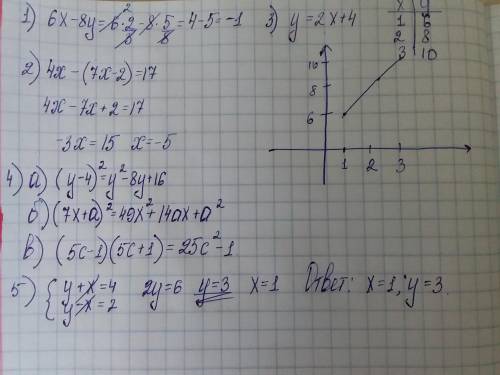 1) 6x-8y=6·2/3-8·5/8=4-5=-1
2) 4x-(7x-2)=17
4x-7x+2=17
-3x=15 x=-5
3) y=2x+4
x y
1 6
2 8
3 10
10
8
6
1 2 3
4) а) (y-4)²=y²-8y+16
б) (7x+a)²=49x²+14ax+a²
в) (5c-1)(5c+1)=25c²-1
5) { y+x=4
y-x=2
2y=6 y=3 x=1 Ответ: x=1; y=3.